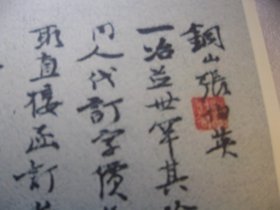 銅山張伯英
一冶並世罕其
同人代訂字價
取直接函訂